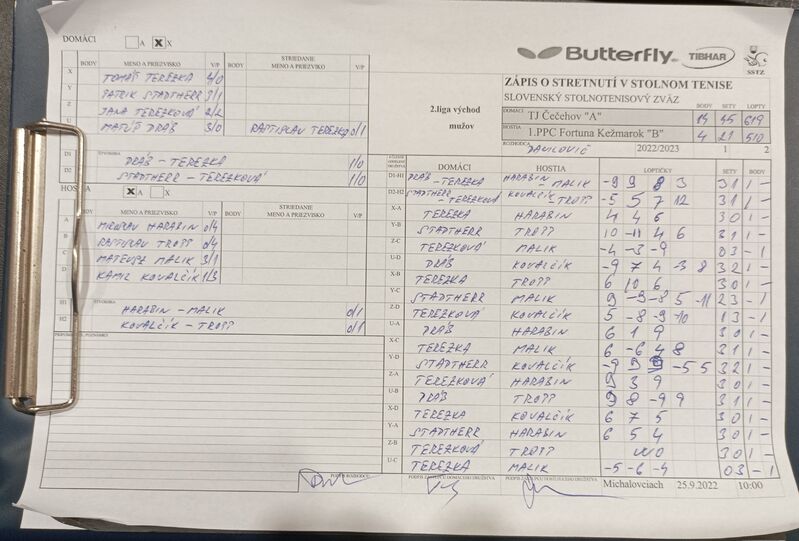 DOMÁCI A X
BODY MENO A PRIEZVISKO V/P BODY STRIEDANIE MENO A PRIEZVIKO V/P
X TOMÁŠ TEREZKA 4/0
Y PATRIK STADTHERR 3/1
Z JANA TEREZKOVÁ 2/2
U MATÚŠ DRÁB 3/0 RASTISLAV TEREZKA 0/1
ŠTVORHRA
D1 DRÁB - TEREZKA 1/0
D2 STADTHERR - TEREZKOVÁ 1/0
HOSTIA A X
BODY MENO A PRIEZVISKO V/P BODY STRIEDANIE MENO A PRIEZVISKO V/P
A MIROSLAV HARABIN 0/4
B RASTISLAV TROPP 0/4
C MATEUSZ MALIK 3/1
D KAMIL KOVALČÍK 1/3
ŠTVORHRA
H1 HARABIN - MALIK 0/1
H2 KOVALČÍK - TROPP 0/1
PRIPOMIENKY, POZNÁMKY
PODPIS ROZHODCU
Butterfly TIBHAR SSTZ
ZÁPIS O STRETNUTÍ V STOLNOM TENISE
SLOVENSKÝ STOLNOTENISOVÝ ZVÄZ
2.liga východ
mužov
BODY SETY LOPTY
DOMÁCI TJ Čečehov "A" 14 45 619
HOSTIA 1.PPC Fortuna Kežmarok "B" 4 21 510
ROZHODCA DANILOVIČ 2022/2023 1 2
DOMÁCI HOSTIA LOPTIČKY SETY BODY
D1-H1 DRÁB - TEREZKA HARABIN - MALIK -9 9 8 3 3 1 1 -
D2-H2 STADTHERR - TEREZKOVÁ KOVALČÍK - TROPP -5 5 7 12 3 1 1 -
X-A TEREZKA HARABIN 4 4 6 3 0 1 -
Y-B STADTHERR TROPP 10 -11 4 6 3 1 1 -
Z-C TEREZKOVÁ MALIK -4 -3 -9 0 3 - 1
U-D DRÁB KOVALČÍK -9 7 4 -3 8 3 2 1 -
X-B TEREZKA TROPP 6 10 6 3 0 1 -
Y-C STADTHERR MALIK 9 -9 -8 5 -11 2 3 - 1
Z-D TEREZKOVÁ KOVALČÍK 5 -8 -9 -10 1 3 - 1
U-A DRÁB HARABIN 6 1 9 3 0 1 -
X-C TEREZKA MALIK 6 -6 4 8 3 1 1 -
Y-D STADTHERR KOVALČÍK -9 9 -5 5 3 2 1 -
Z-A TEREZKOVÁ HARABIN 9 3 9 3 0 1 -
U-B DRÁB TROPP 9 8 -9 9 3 1 1 -
X-D TEREZKA KOVALČÍK 6 7 5 3 0 1 -
Y-A STADTHERR HARABIN 6 5 4 3 0 1 -
Z-B TEREZKOVÁ TROPP WO 3 0 1 -
U-C TEREZKA MALIK -5 -6 -4 0 3 - 1
PODPIS ZÁSTUPCU DOMÁCEHO DRUŽSTVA PODPIS ZÁSTUPCU HOSŤUJÚCEHO DRUŽSTVA Michalovciach 25.9.2022 10:00